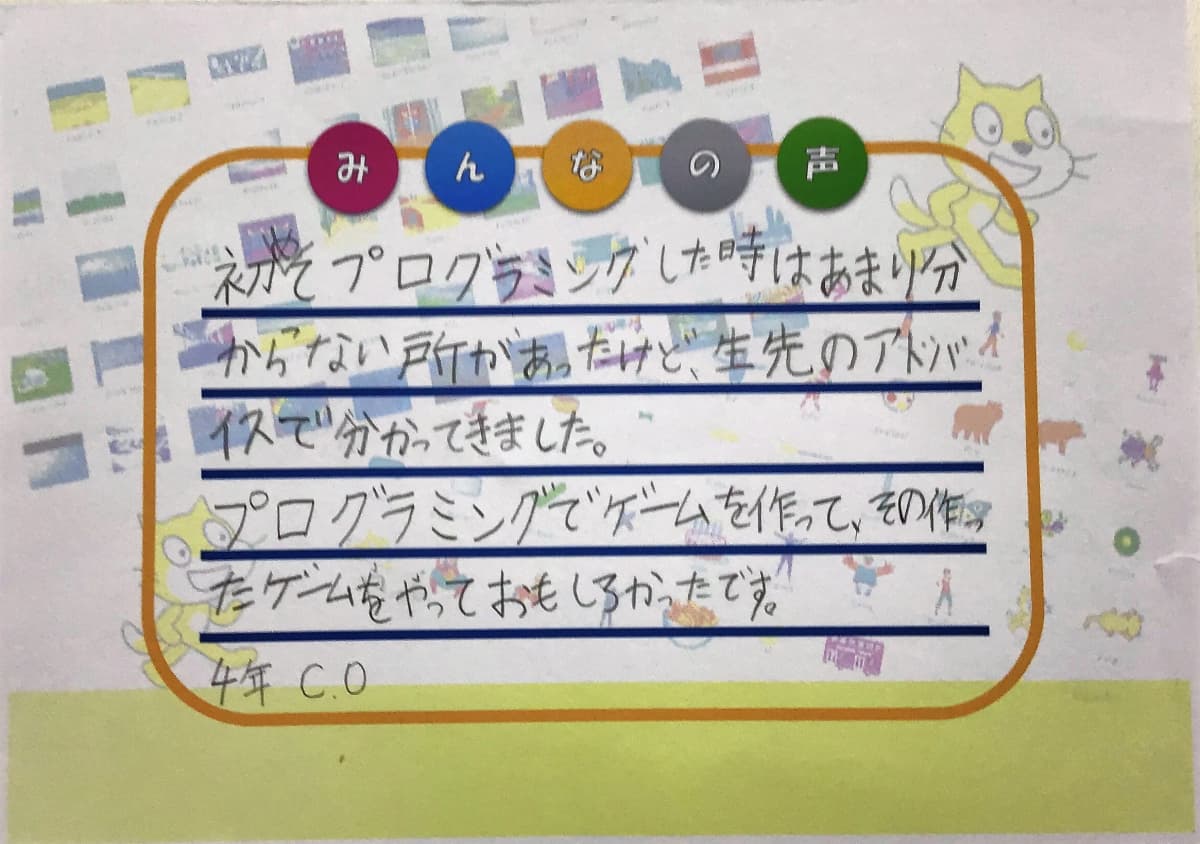 みんなの声
初めてプログラミングした時はあまり分
からない所があったけど、生先のアドバ
イスで分かってきました。
プログラミングでゲームを作って、その作っ
たゲームをやっておもしろかったです。
4年 C.O